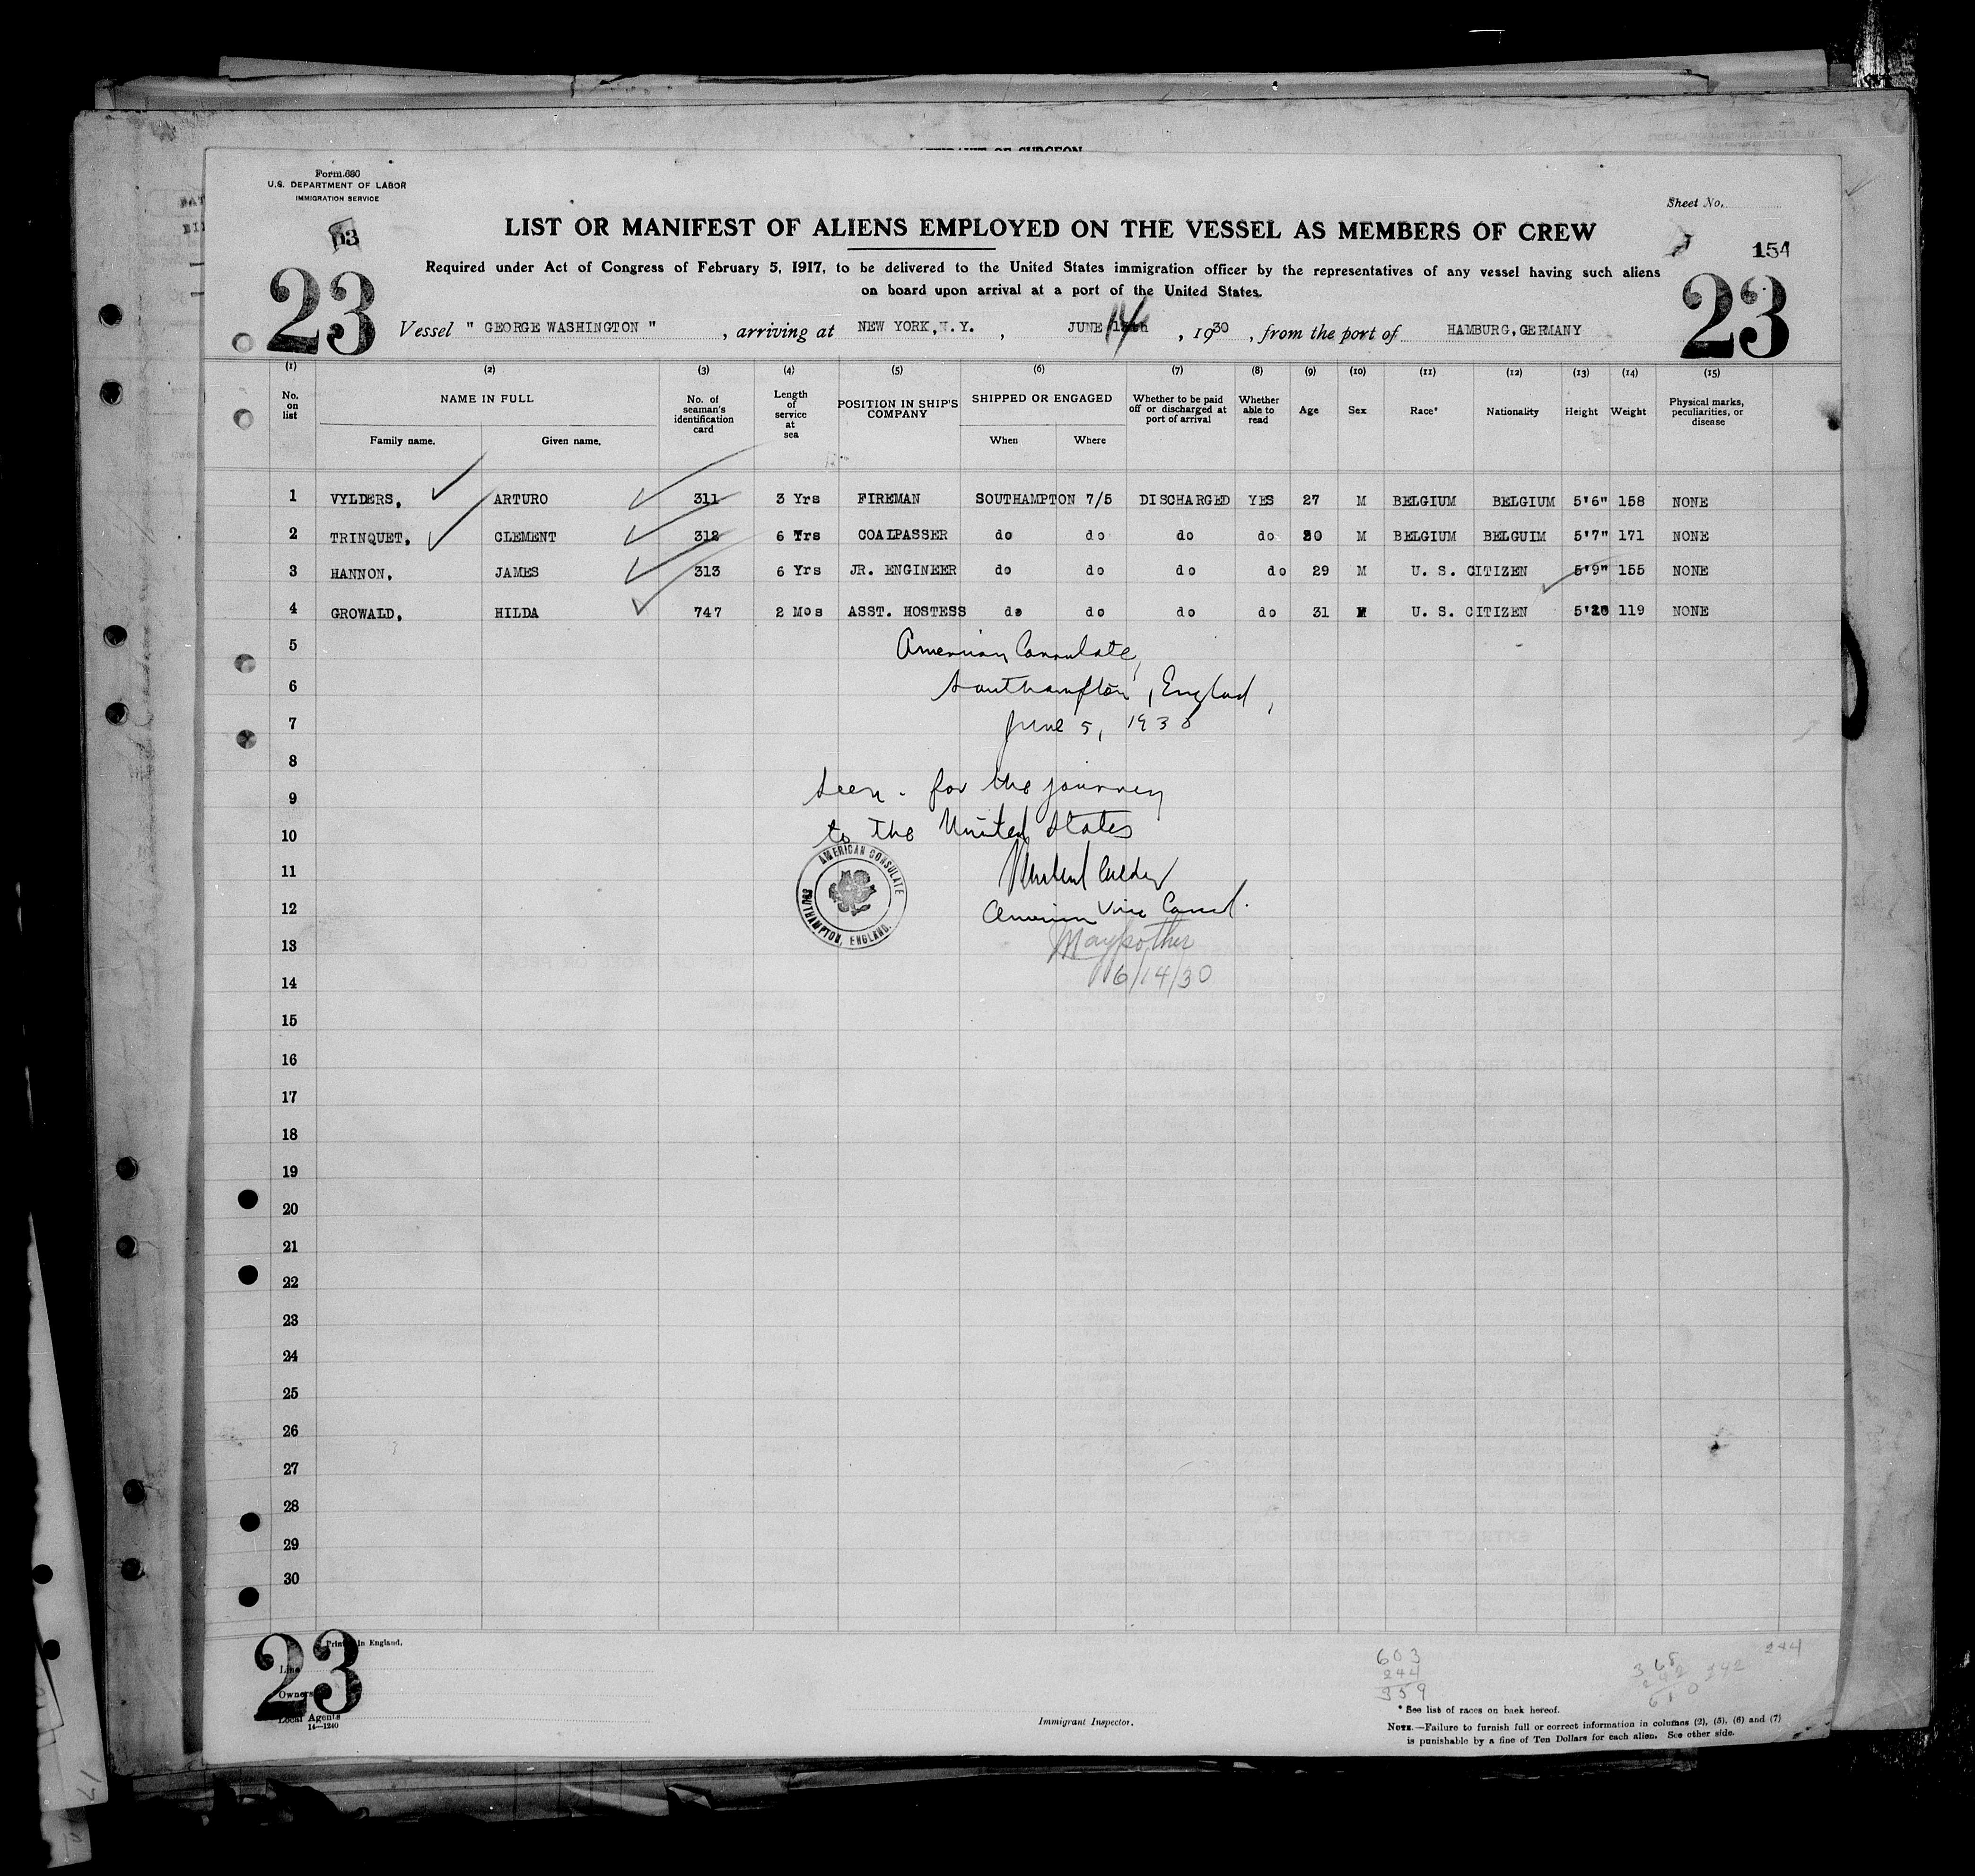 Form 680
U.S. DEPARTMENT OF LABOR
IMMIGRATION SERVICE
Sheet No.
LIST OR MANIFEST OF ALIENS EMPLOYED ON THE VESSEL AS MEMBERS OF CREW
154
23
23
Required under Act of Congress of February 5, 1917, to be delivered to the United States immigration officer by the representatives of any vessel having such aliens
on board upon arrival at a port of the United States.
Vessel " GEORGE WASHINGTON " , arriving at NEW YORK, N.Y. , JUNE 14 , 1930 , from the port of HAMBURG, GERMANY
(1) (2) (3) (4) (5) (6) (7) (8) (9) (10) (11) (12) (13) (14) (15)
No. on list
NAME IN FULL
Family name. Given name.
No. of seaman's identification card
Length of service at sea
POSITION IN SHIP'S COMPANY
SHIPPED OR ENGAGED
When Where
Whether to be paid off or discharged at port of arrival
Whether able to read
Age Sex Race* Nationality Height Weight
Physical marks, peculiarities, or disease
1 VYLDERS, ARTURO 311 3 Yrs FIREMAN SOUTHAMPTON 7/5 DISCHARGED YES 27 M BELGIUM BELGIUM 5'6" 158 NONE
2 TRINQUET, CLEMENT 312 6 Yrs COALPASSER do do do do 30 M BELGIUM BELGUIM 5'7" 171 NONE
3 HANNON, JAMES 313 6 Yrs JR. ENGINEER do do do do 29 M U. S. CITIZEN 5'9" 155 NONE
4 GROWALD, HILDA 747 2 Mos ASST. HOSTESS do do do do 31 U. S. CITIZEN 119 NONE
5 American Consulate,
6 Southampton, England,
7 June 5, 1930
8
9 Seen. for the journey
10 to the United States
AMERICAN CONSULATE
SOUTHAMPTON, ENGLAND.
11
12 American Vice Consul.
13
14 6/14/30
15
16
17
18
19
20
21
22
23
24
25
26
27
28
29
30
23
Printed in England.
Line
Owners
Local Agents
14—1240
Immigrant Inspector.
603
244
359
368
242
610
342
244
* See list of races on back hereof.
NOTE.—Failure to furnish full or correct information in columns (2), (5), (6) and (7)
is punishable by a fine of Ten Dollars for each alien. See other side.